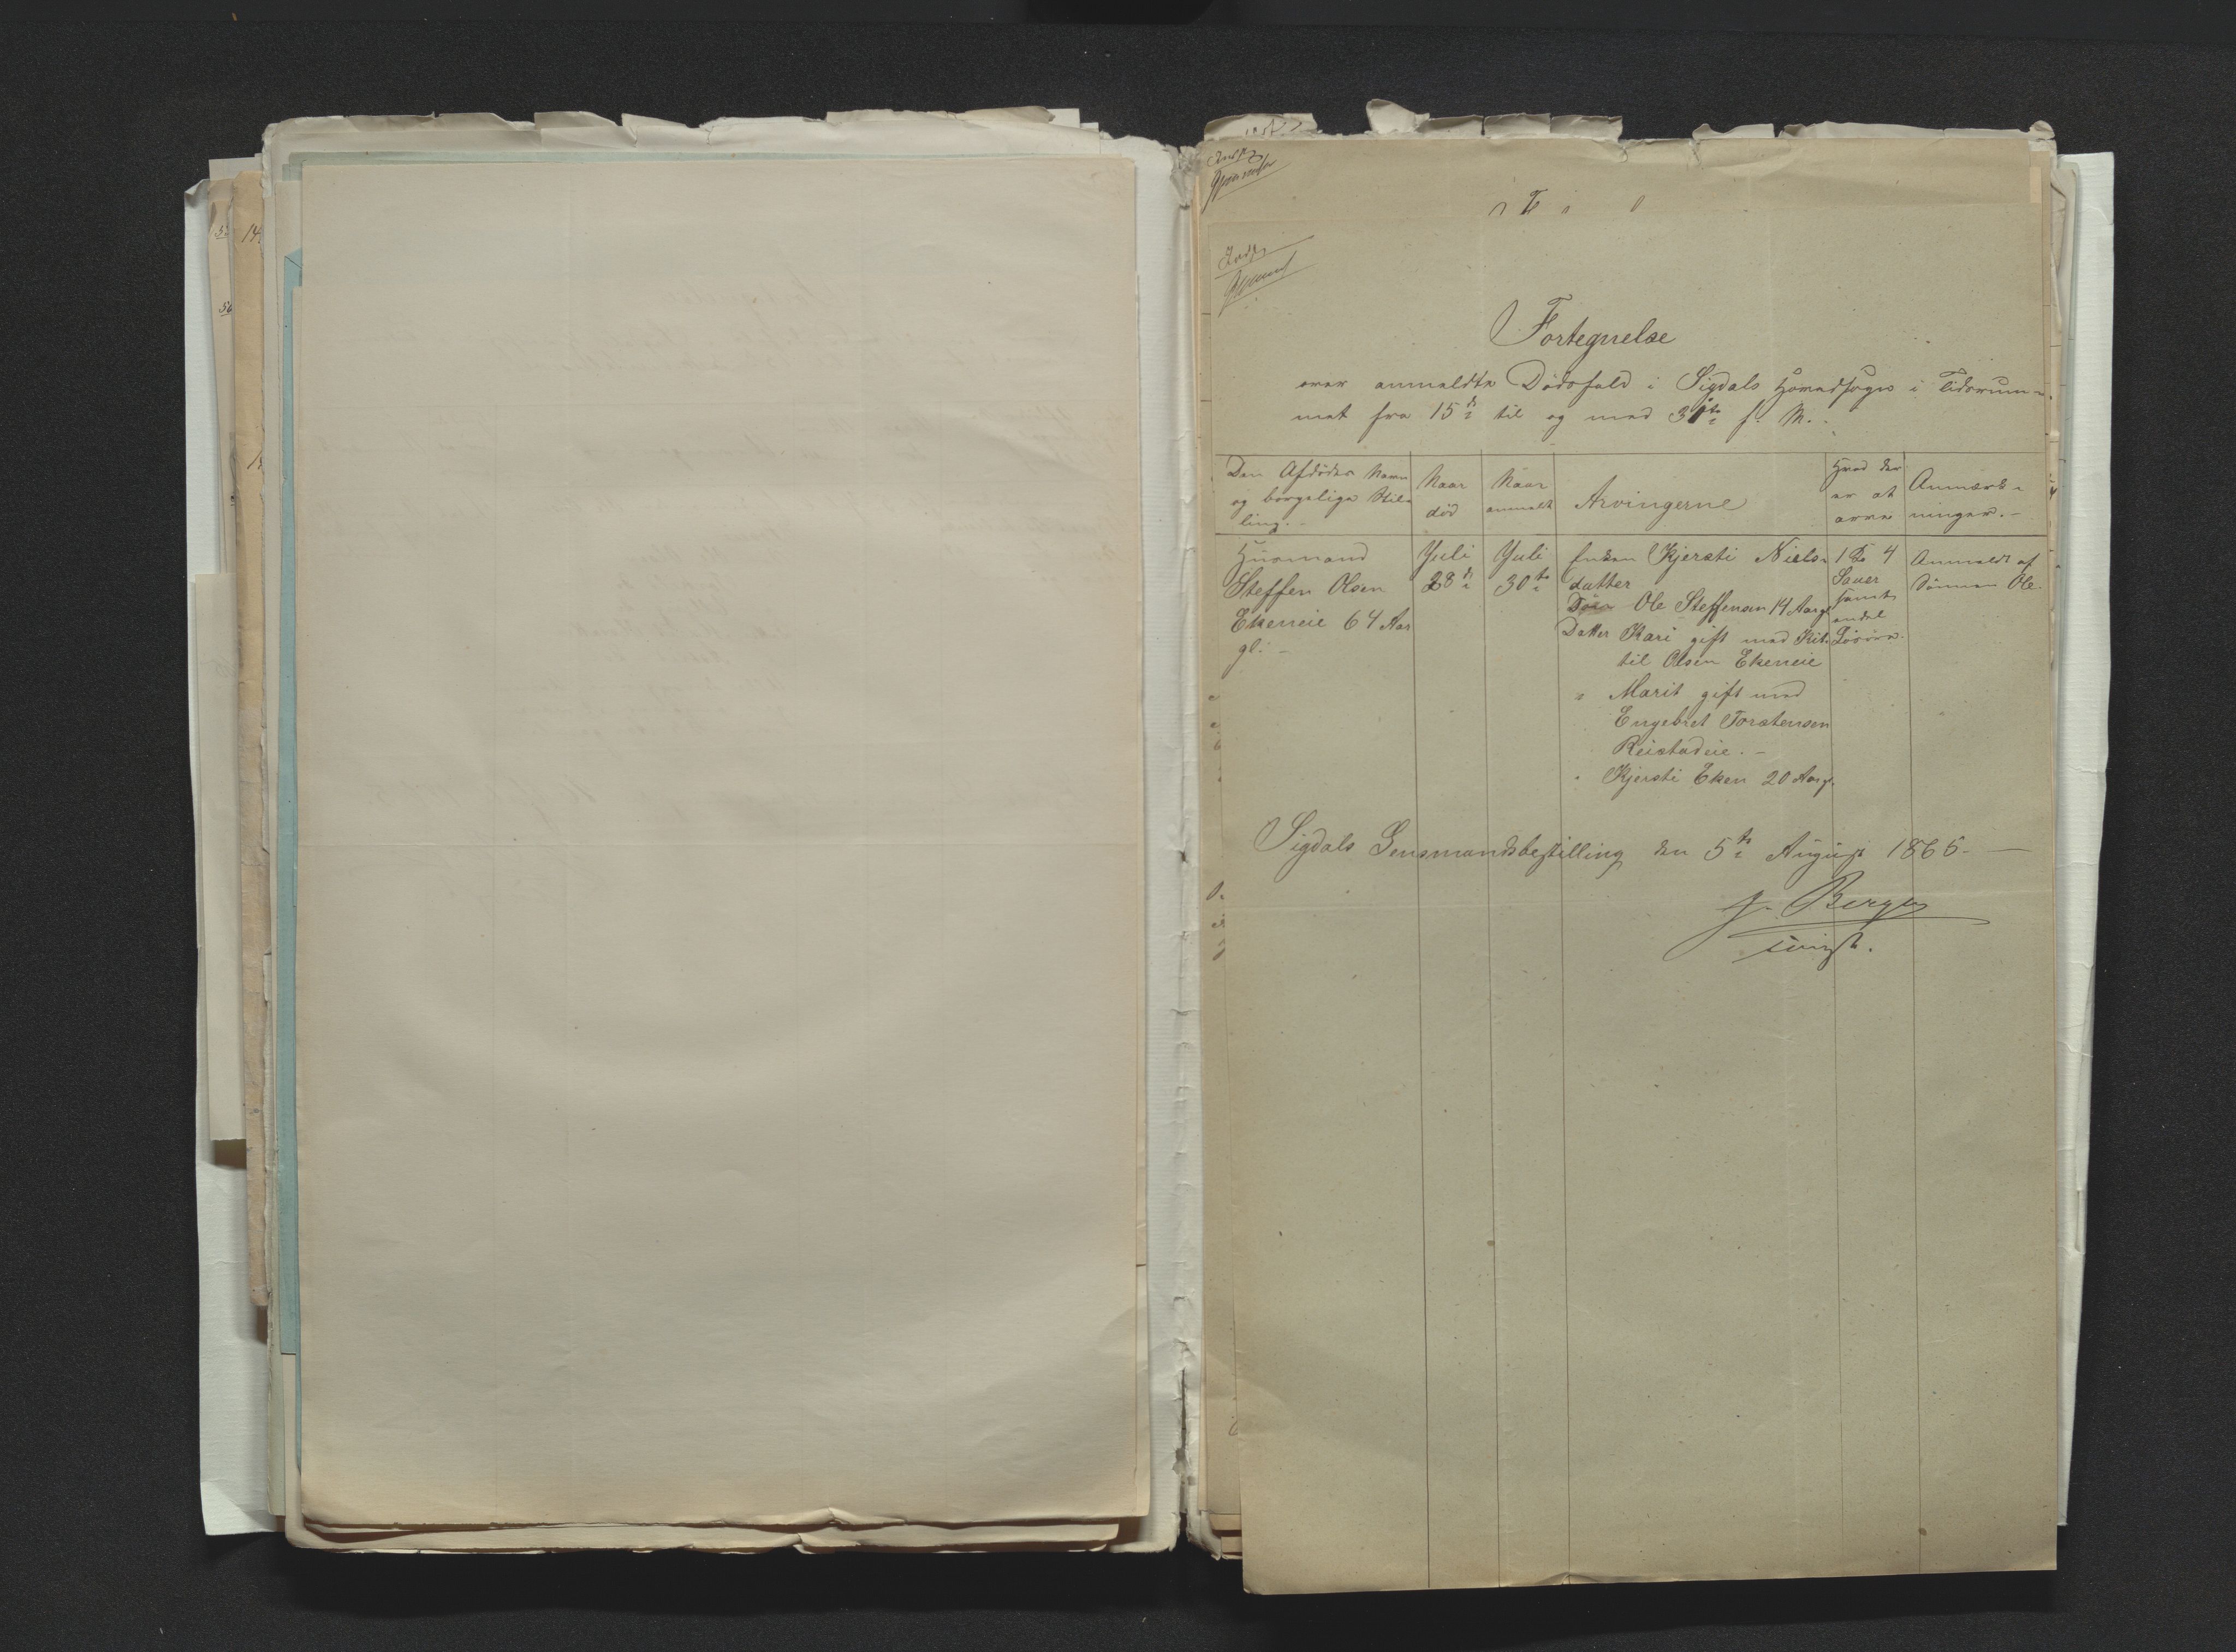 Fortegnelse
over anmeldte Dødsfald i Sigdals Hovedsogn i Tidsrum-
met fra 15de til og med 31te f. M.
Den Afdødes Navn
og borgelige Stil-
ling.-
Naar
død
Naar
anmeldt
Arvingerne
Hvad der
er at
arve
Anmærk-
ninger.-
Huusmand
Steffen Olsen
Ekeneie 64 Aar
gl. -
Juli
28de
Juli
30te
Enken Kjersti Niels-
datter
Søn Ole Steffensen 14 Aar gl
Datter Kari gift med Kit-
til Olsen Ekeneie
" Marit gift med
Engebret Torstensen
Reistadeie. -
" Kjersti Eken 20 Aar gl.
1 Ko 4
Sauer
samt
endel
Løsøre.
Anmeldt af
Sønnen Ole.
Sigdals Lensmandsbestilling den 5te August 1865 -
J. Berger
const.